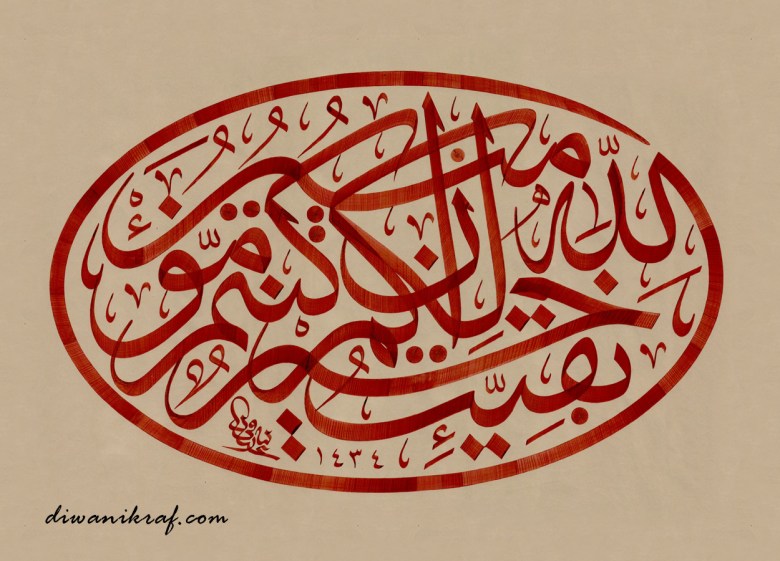 بقيت الله خير لكم ان كنتم مؤمنين
١٤٣٤
diwanikraf.com